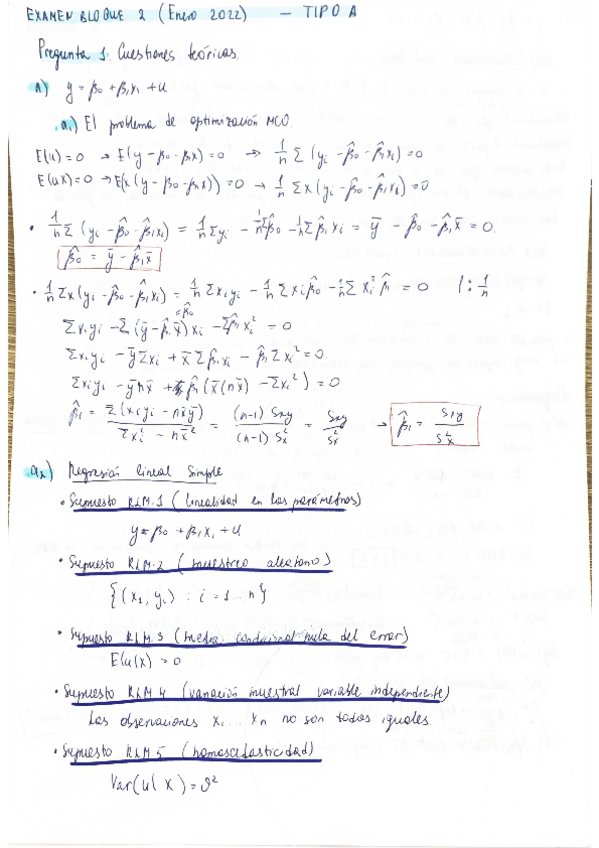 EXAMEN BLOQUE 2 (Enero 2022) - TIPO A
Pregunta 1. Cuestiones teóricas.
a) y = β0 + β1x1 + u
a1) El problema de optimización MCO.
E(u) = 0 → E(y - β0 - β1x) = 0 → 1/n Σ (yi - β̂0 - β̂1xi) = 0
E(ux) = 0 → E(x(y - β0 - β1x)) = 0 → 1/n Σ x(yi - β̂0 - β̂1xi) = 0
· 1/n Σ (yi - β̂0 - β̂1xi) = 1/n Σyi - 1/n Σβ̂0 - 1/n Σ β̂1 xi = ȳ - β̂0 - β̂1x̄ = 0.
β̂0 = ȳ - β̂1x̄
· 1/n Σx(yi - β̂0 - β̂1xi) = 1/n Σ xiyi - 1/n Σ xi β̂0 - 1/n Σ xi² β̂1 = 0 /: 1/n
= β̂0
Σxiyi - Σ(ȳ - β̂1x̄) xi - Σβ̂1 xi² = 0
Σxiyi - ȳΣxi + x̄ Σβ̂1xi - β̂1Σxi² = 0
Σxiyi - ȳnx̄ + β̂1 (x̄(nx̄) - Σxi²) = 0
β̂1 = Σ(xiyi - nx̄ȳ) / Σxi - nx̄² = (n-1) Sxy / (n-1) Sx² = Sxy / Sx² → β̂1 = Sxy / S²x
a2) Regresión lineal simple
· Supuesto RLM.1 (linealidad en los parámetros)
y = β0 + β1x1 + u
· Supuesto RLM.2 (muestreo aleatorio)
{(x1, yi) : i = 1...n}
· Supuesto RLM.3 (media condicional nula del error)
E(u|x) = 0
· Supuesto RLM.4 (variación muestral variable independiente)
Las observaciones x1 ... xn no son todas iguales.
· Supuesto RLM.5 (homoscedasticidad)
Var(u|x) = σ²